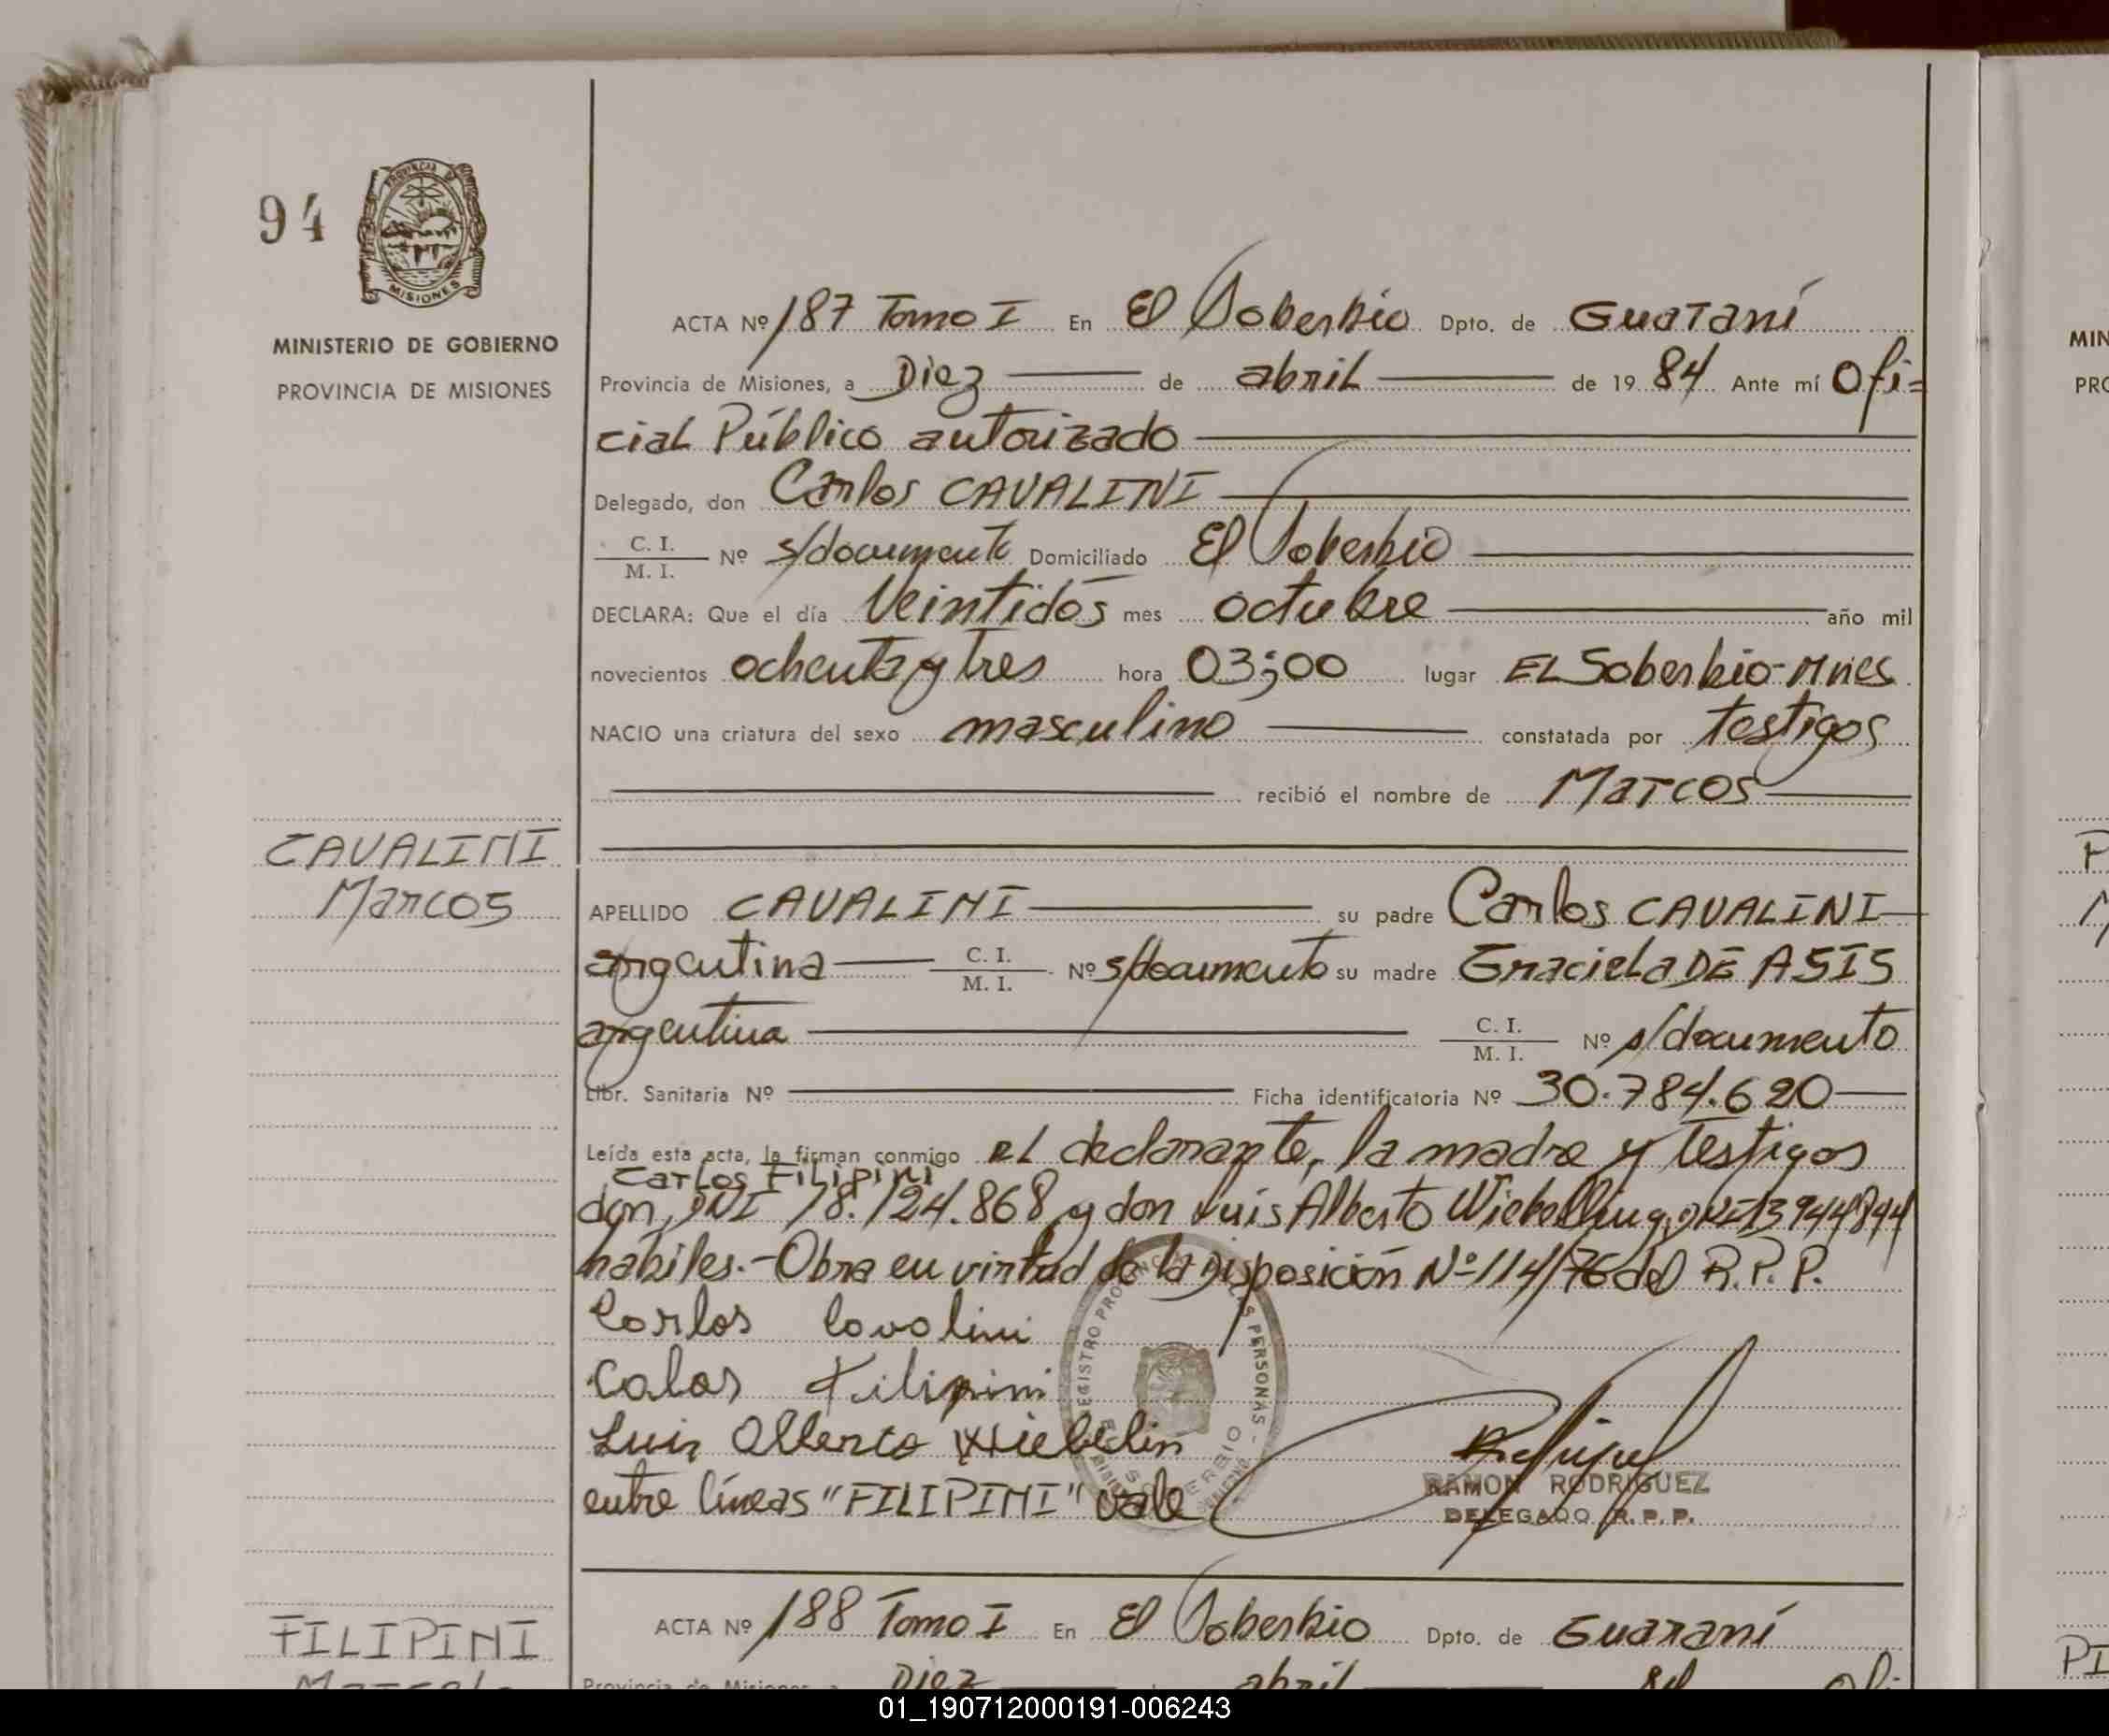 94
PROVINCIA DE
MISIONES
MINISTERIO DE GOBIERNO
PROVINCIA DE MISIONES
ACTA Nº 187 Tomo I En El Soberbio Dpto. de Guaraní
Provincia de Misiones, a Diez de abril de 19 84 Ante mí Ofi=
cial Público autorizado
Delegado, don Carlos CAVALINI
C. I.
M. I. Nº s/documento Domiciliado El Soberbio
DECLARA: Que el día Veintidós mes octubre año mil
novecientos ochenta y tres hora 03;00 lugar EL Soberbio-Mnes
NACIO una criatura del sexo masculino constatada por testigos
recibió el nombre de Marcos
CAVALINI
Marcos
APELLIDO CAVALINI su padre Carlos CAVALINI
argentina C. I. M. I. Nº s/documento su madre Graciela DE ASIS
argentina C. I. M. I. Nº s/documento
Libr. Sanitaria Nº Ficha identificatoria Nº 30.784.620
Leída esta acta, la firman conmigo el declarante, la madre y testigos
Carlos FILIPINI
don, DNI 18.124.868 y don Luis Alberto Wiebelling, DNI 13944844
habiles.-Obra en virtud de la Disposición Nº 114/76 del R.P.P.
Carlos Cavalini
Calos Filipini
Luis Alberto Wiebelin
entre líneas "FILIPINI" vale
REGISTRO PROVINCIAL DE LAS PERSONAS
RAMON RODRIGUEZ
DELEGADO R. P. P.
ACTA Nº 188 Tomo I En El Soberbio Dpto. de Guaraní
FILIPINI
Provincia de Misiones, a Diez abril 84 Ofi
MIN
PRO
01_190712000191-006243